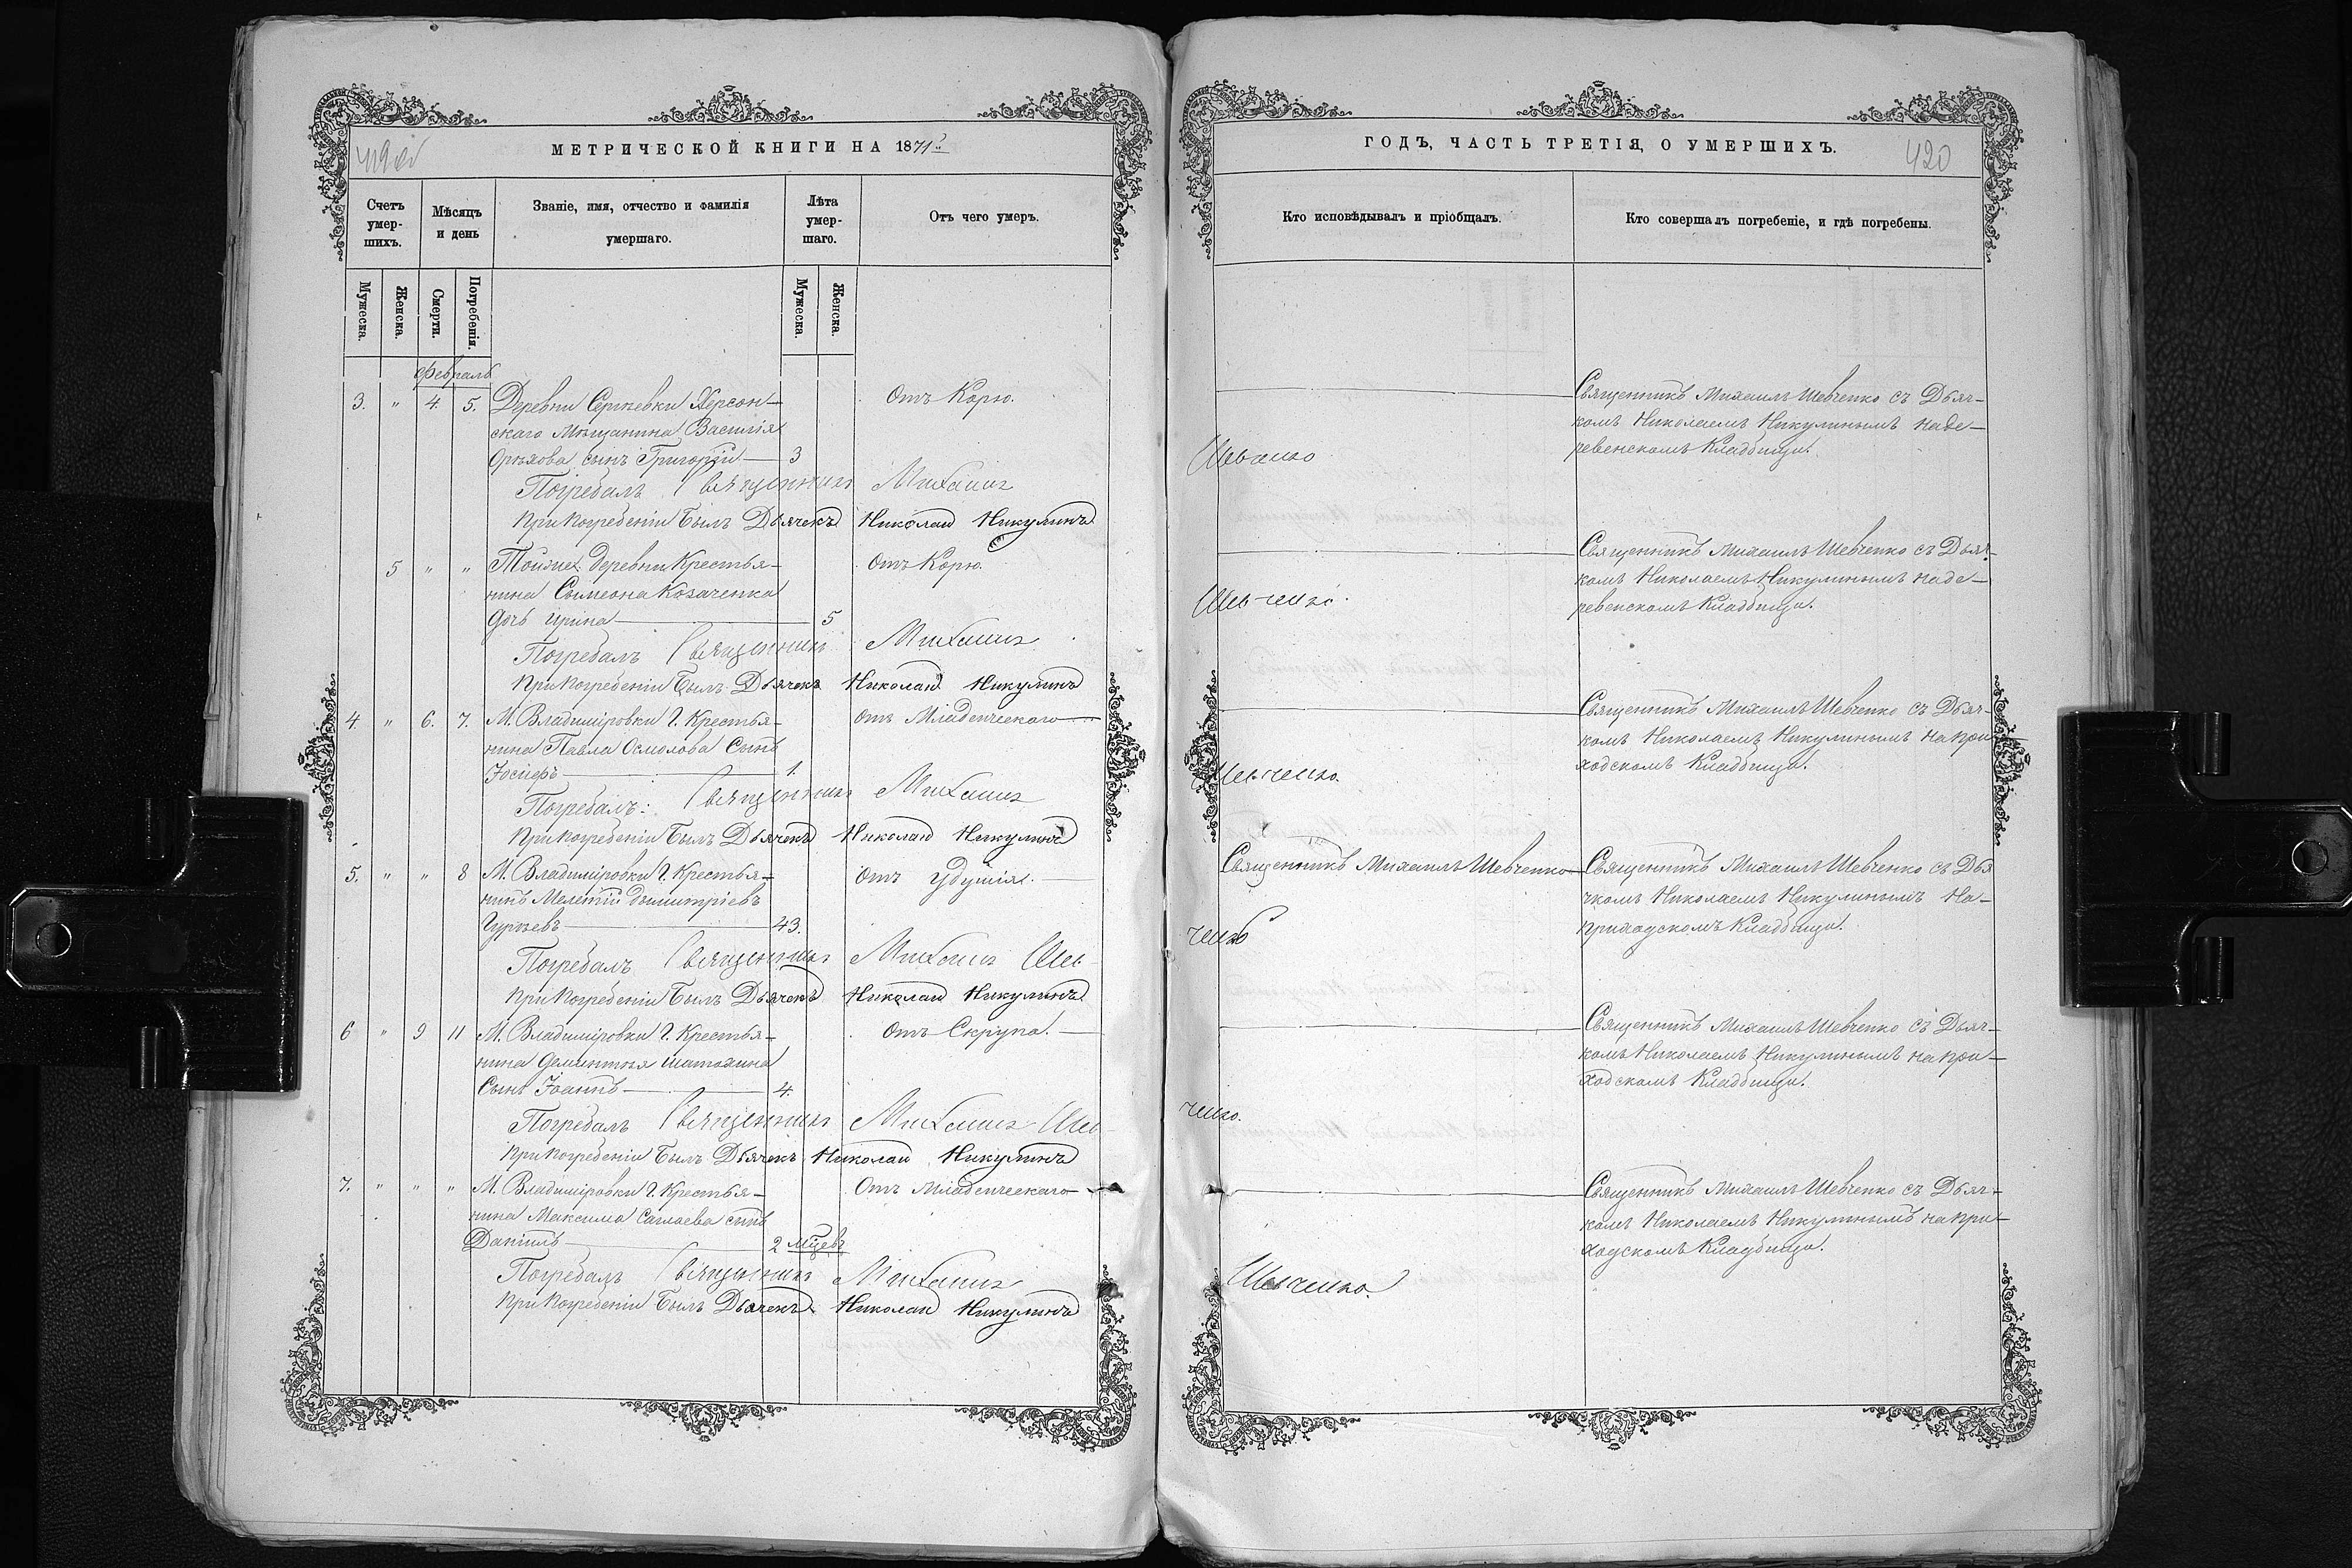 419 об
МЕТРИЧЕСКОЙ КНИГИ НА 1871й
Счетъ умер-шихъ.
Мѣсяцъ и день
Званіе, имя, отчество и фамилія умершаго.
Лѣта умер-шаго.
Отъ чего умеръ.
Мужеска.
Женска.
Смерти.
Погребенія.
Мужеска.
Женска.
Февраль
3. " 4. 5. Деревни Сергеевки Херсон- Отъ Корю.
скаго Мѣщанина Василія
Орѣхова сынъ Григорій — 3
Погребалъ Священникъ Михаилъ
При погребеніи былъ Дьячекъ Николай Никулинъ
5 " " Тойже деревни Крестья- Отъ Корю.
нина Сымеона Козаченка
дочь Ирина — 5
Погребалъ Священникъ Михаилъ
При погребеніи былъ Дьячекъ Николай Никулинъ
4. " 6. 7. М. Владиміровки Г. Крестья- отъ Младенческаго —
нина Павла Осмолова Сынъ
Іосифъ — 1.
Погребалъ: Священникъ Михаилъ
При погребеніи былъ Дьячекъ Николай Никулинъ
5. " " 8 М. Владиміровки Г. Крестья- отъ Удушія. —
нинъ Мелетій Димитріевъ
Гурѣевъ — 43.
Погребалъ Священникъ Михаилъ Шев-
При погребеніи былъ Дьячекъ Николай Никулинъ
6 " 9 11 М. Владиміровки Г. Крестья- отъ Скрупа. —
нина Дементія Шатохина
Сынъ Іоаннъ — 4.
Погребалъ Священникъ Михаилъ Шев-
При погребеніи былъ Дьячекъ Николай Никулинъ
7. " " " М. Владиміровки Г. Крестья- Отъ Младенческаго —
нина Максима сынъ
Даніилъ — 2 мцевъ
Погребалъ Священникъ Михаилъ
При погребеніи былъ Дьячекъ Николай Никулинъ
420
ГОДЪ, ЧАСТЬ ТРЕТІЯ, О УМЕРШИХЪ.
Кто исповѣдывалъ и пріобщалъ.
Кто совершалъ погребеніе, и гдѣ погребены.
Священникъ Михаилъ Шевченко съ Дьяч-
комъ Николаемъ Никулинымъ на де-
ревенскомъ Кладбищи.
Шевченко
Священникъ Михаилъ Шевченко съ Дьяч-
комъ Николаемъ Никулинымъ на де-
ревенскомъ Кладбищи.
Шевченко.
Священникъ Михаилъ Шевченко съ Дьяч-
комъ Николаемъ Никулинымъ на при-
ходскомъ Кладбищи.
Шевченко.
Священникъ Михаилъ Шевченко — Священникъ Михаилъ Шевченко съ Дья
чкомъ Николаемъ Никулинымъ на-
приходскомъ Кладбищи.
ченко
Священникъ Михаилъ Шевченко съ Дьяч-
комъ Николаемъ Никулинымъ на при-
ходскомъ Кладбищи.
ченко.
Священникъ Михаилъ Шевченко съ Дьяч-
комъ Николаемъ Никулинымъ на при-
ходскомъ Кладбищи.
Шевченко.